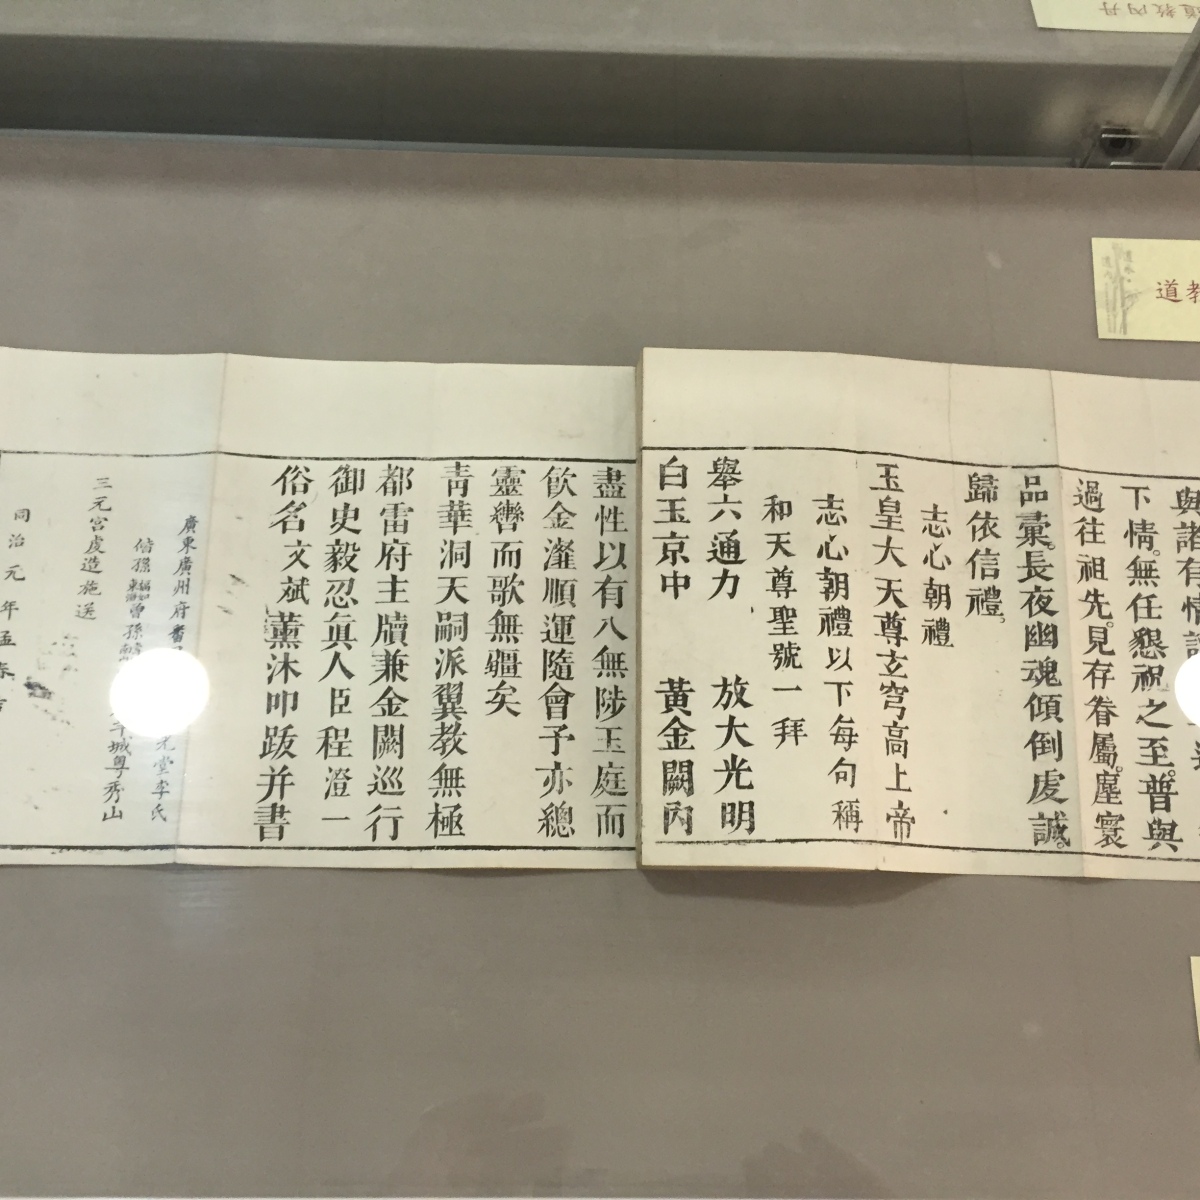 道教內丹
道教
與諸有情
下情。無任懇祝之至。普與
過往祖先。見存眷屬。塵寰
品彙。長夜幽魂傾倒虔誠。
歸依信禮。
志心朝禮
玉皇大天尊玄穹高上帝
志心朝禮以下每句稱
和天尊聖號一拜
舉六通力 放大光明
白玉京中 黃金闕內
盡性以有八無陟玉庭而
飲金灕順運隨會予亦總
靈轡而歌無疆矣
青華洞天嗣派翼教無極
都雷府主牘兼金闕巡行
御史毅忍眞人臣程澄一
俗名文斌薰沐叩跋并書
廣東廣州府番 堂李氏
偕孫 曾孫 城粤秀山
三元宮虔造施送
同治元年孟春